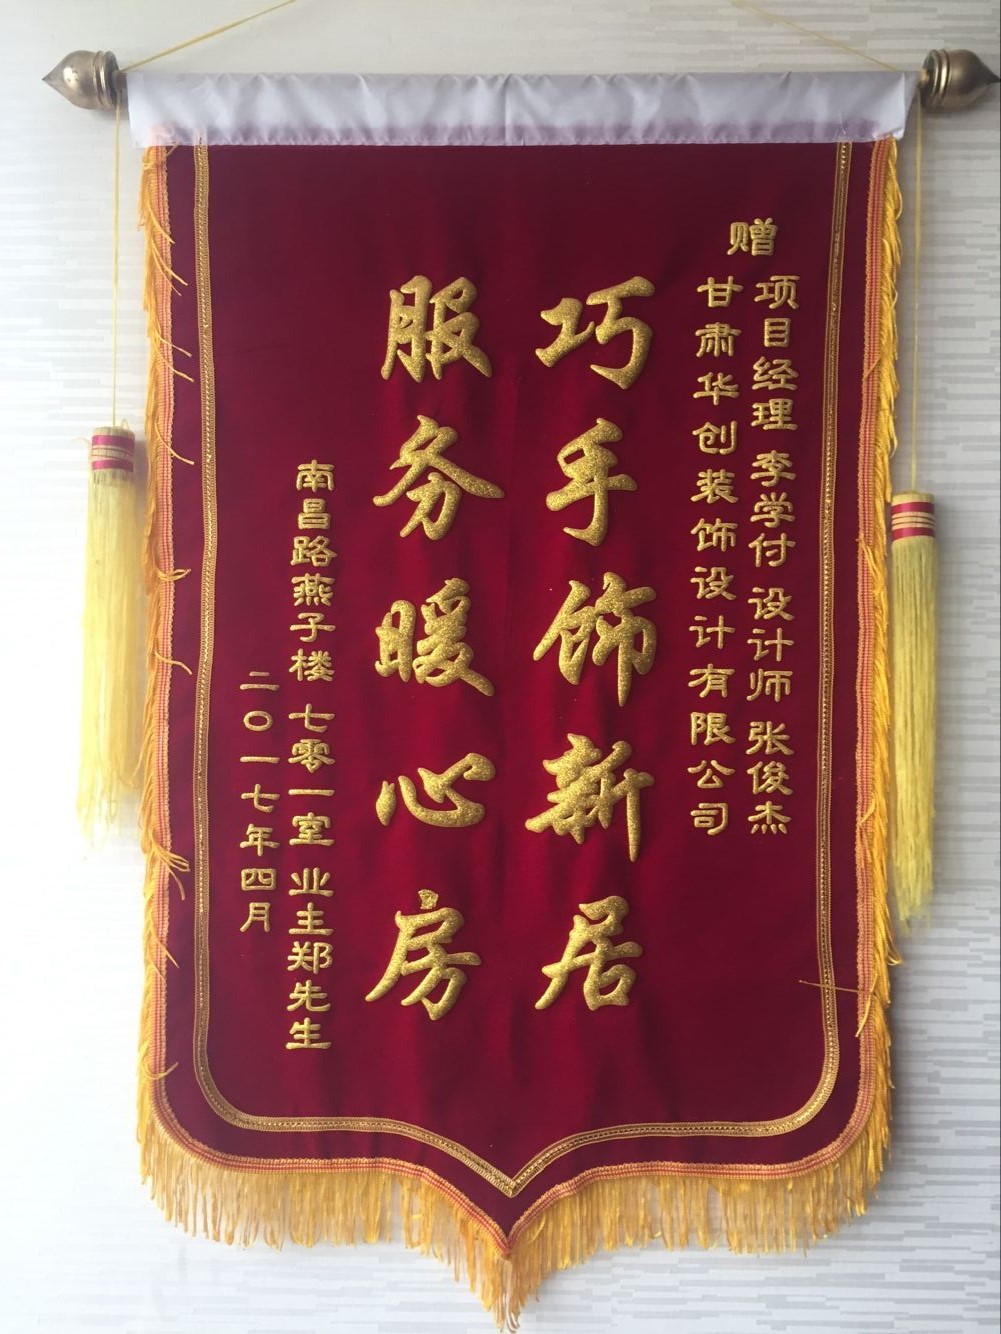 赠
项目经理 李学付 设计师 张俊杰
甘肃华创装饰设计有限公司
巧手饰新居
服务暖心房
南昌路燕子楼 七零一室 业主郑先生
二〇一七年四月